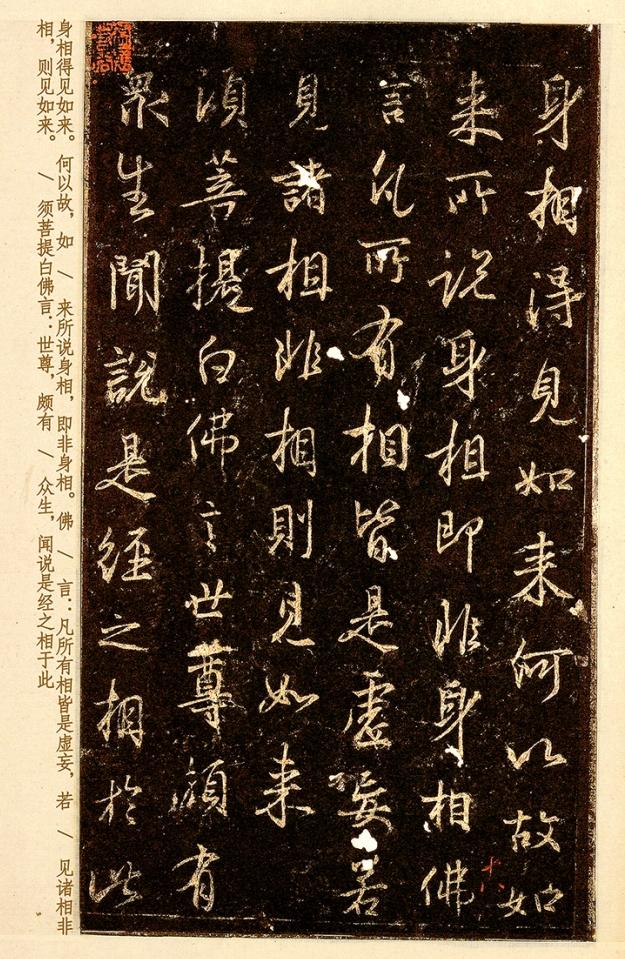 身相得見如来何以故如
来所说身相即非身相佛
言凡所有相皆是虛妄若
見諸相非相則見如来
湏菩提白佛言世尊頗有
眾生聞說是經之相於此
十八
身相得见如来。何以故，如 \ 来所说身相，即非身相。佛 \ 言：凡所有相皆是虚妄，若 \ 见诸相非
相，则见如来。 \ 须菩提白佛言：世尊，颇有 \ 众生，闻说是经之相于此